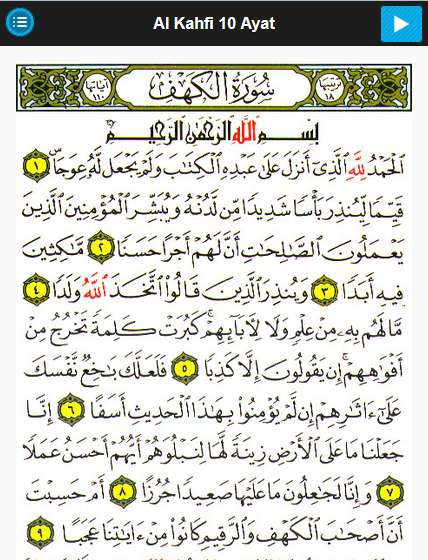 Al Kahfi 10 Ayat
سُورَةُ الْكَهْفِ
بِسْمِ اللَّهِ الرَّحْمَٰنِ الرَّحِيمِ
الْحَمْدُ لِلَّهِ الَّذِي أَنزَلَ عَلَىٰ عَبْدِهِ الْكِتَابَ وَلَمْ يَجْعَل لَّهُ عِوَجًا ۜ ١
قَيِّمًا لِّيُنذِرَ بَأْسًا شَدِيدًا مِّن لَّدُنْهُ وَيُبَشِّرَ الْمُؤْمِنِينَ الَّذِينَ
يَعْمَلُونَ الصَّالِحَاتِ أَنَّ لَهُمْ أَجْرًا حَسَنًا ٢ مَّاكِثِينَ
فِيهِ أَبَدًا ٣ وَيُنذِرَ الَّذِينَ قَالُوا اتَّخَذَ اللَّهُ وَلَدًا ٤
مَّا لَهُم بِهِ مِنْ عِلْمٍ وَلَا لِآبَائِهِمْ ۚ كَبُرَتْ كَلِمَةً تَخْرُجُ مِنْ
أَفْوَاهِهِمْ ۚ إِن يَقُولُونَ إِلَّا كَذِبًا ٥ فَلَعَلَّكَ بَاخِعٌ نَّفْسَكَ
عَلَىٰ آثَارِهِمْ إِن لَّمْ يُؤْمِنُوا بِهَٰذَا الْحَدِيثِ أَسَفًا ٦ إِنَّا
جَعَلْنَا مَا عَلَى الْأَرْضِ زِينَةً لَّهَا لِنَبْلُوَهُمْ أَيُّهُمْ أَحْسَنُ عَمَلًا
٧ وَإِنَّا لَجَاعِلُونَ مَا عَلَيْهَا صَعِيدًا جُرُزًا ٨ أَمْ حَسِبْتَ
أَنَّ أَصْحَابَ الْكَهْفِ وَالرَّقِيمِ كَانُوا مِنْ آيَاتِنَا عَجَبًا ٩